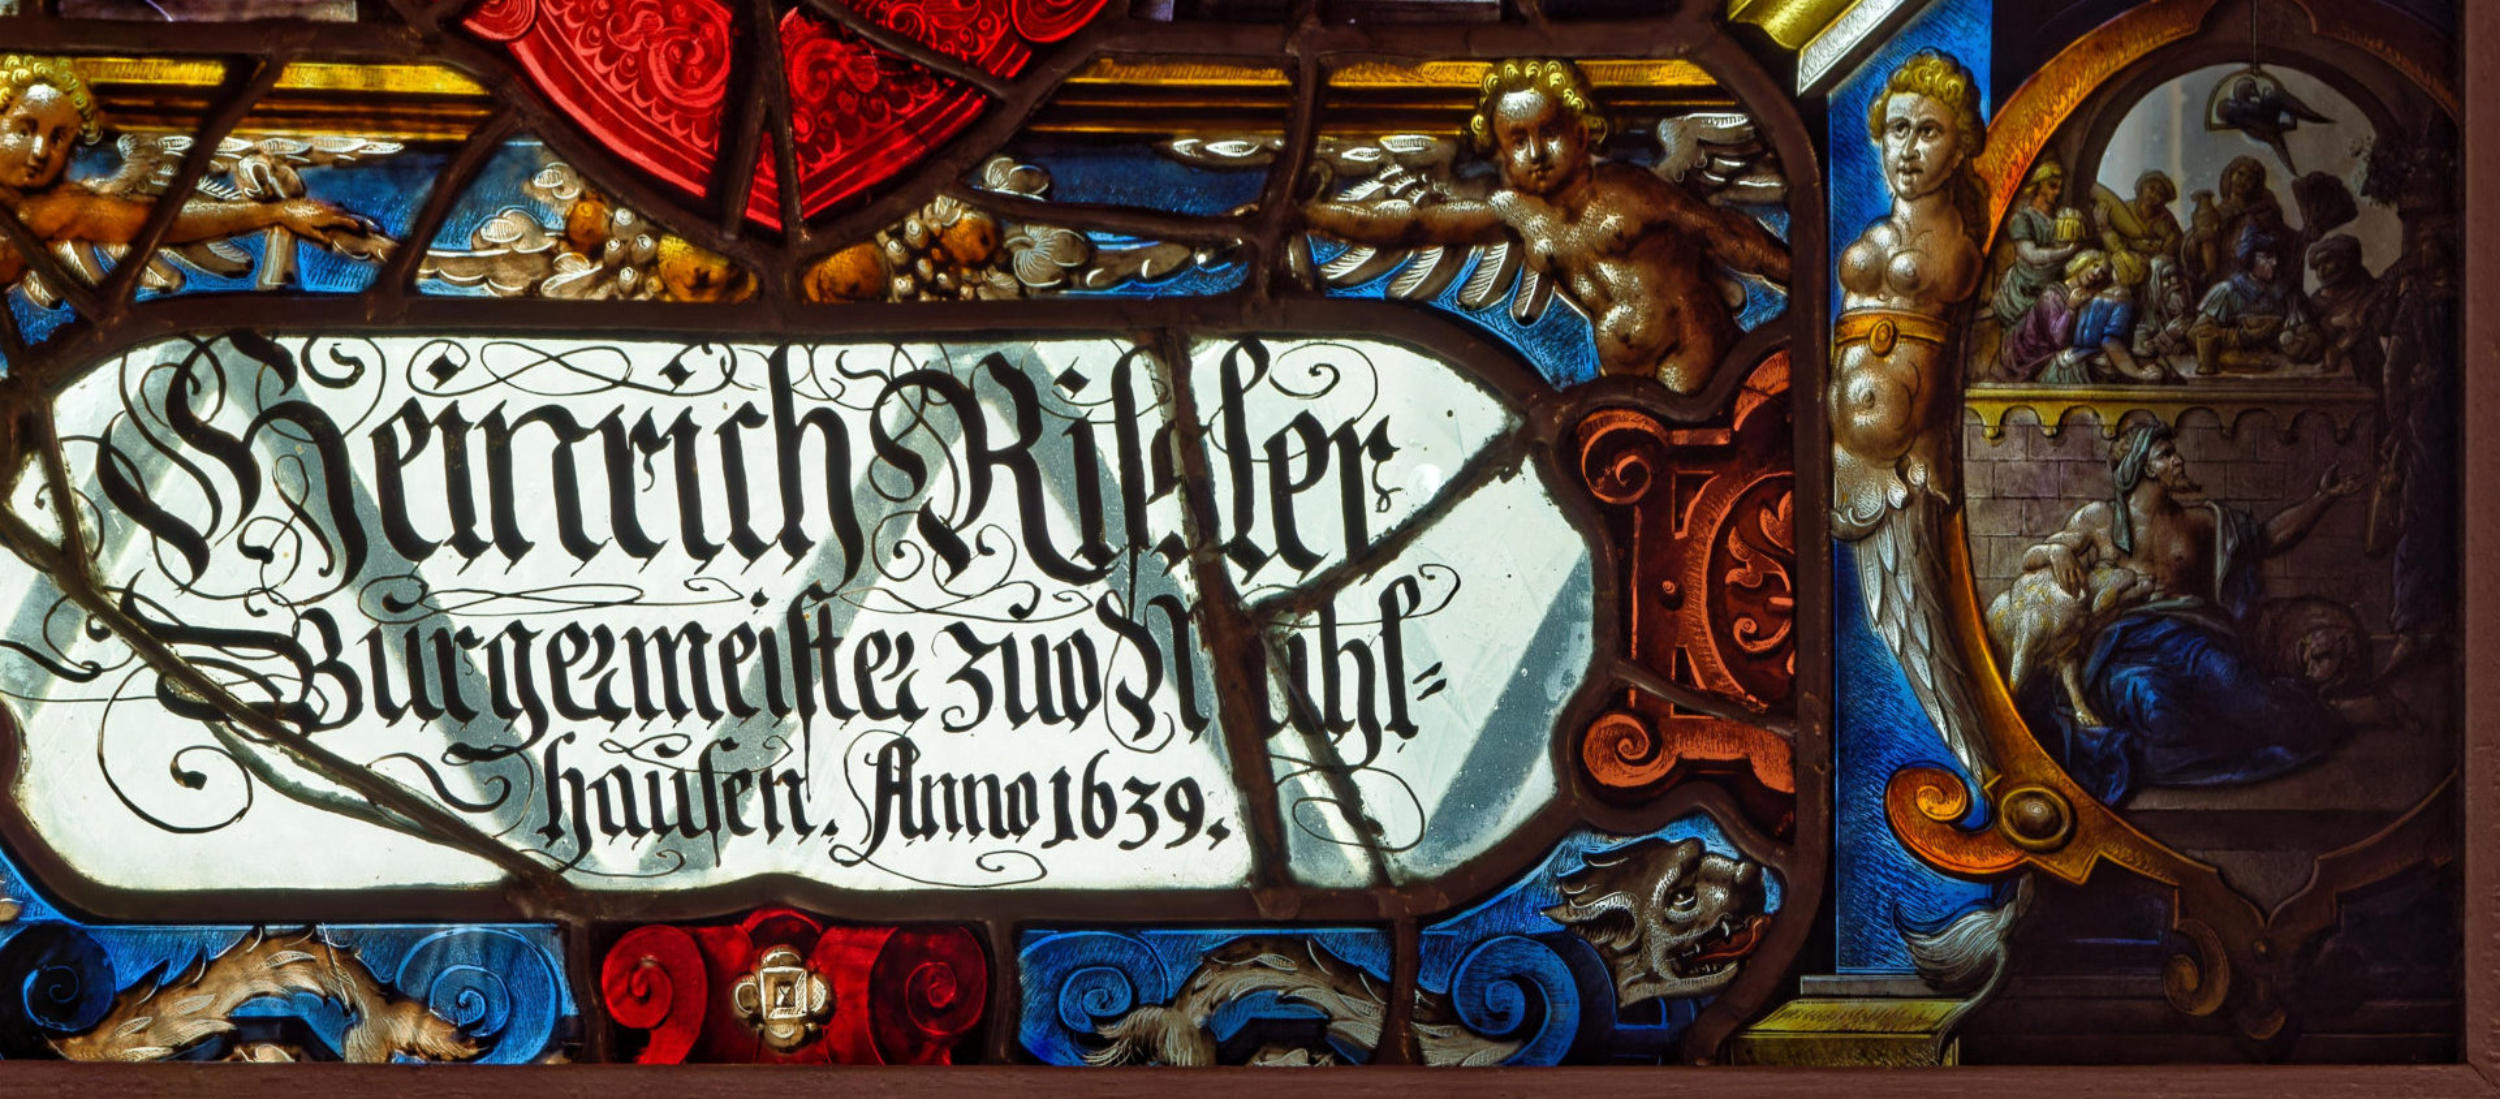 Heinrich Rißler
Burgermeister zuo Muhl=
hausen. Anno 1639.